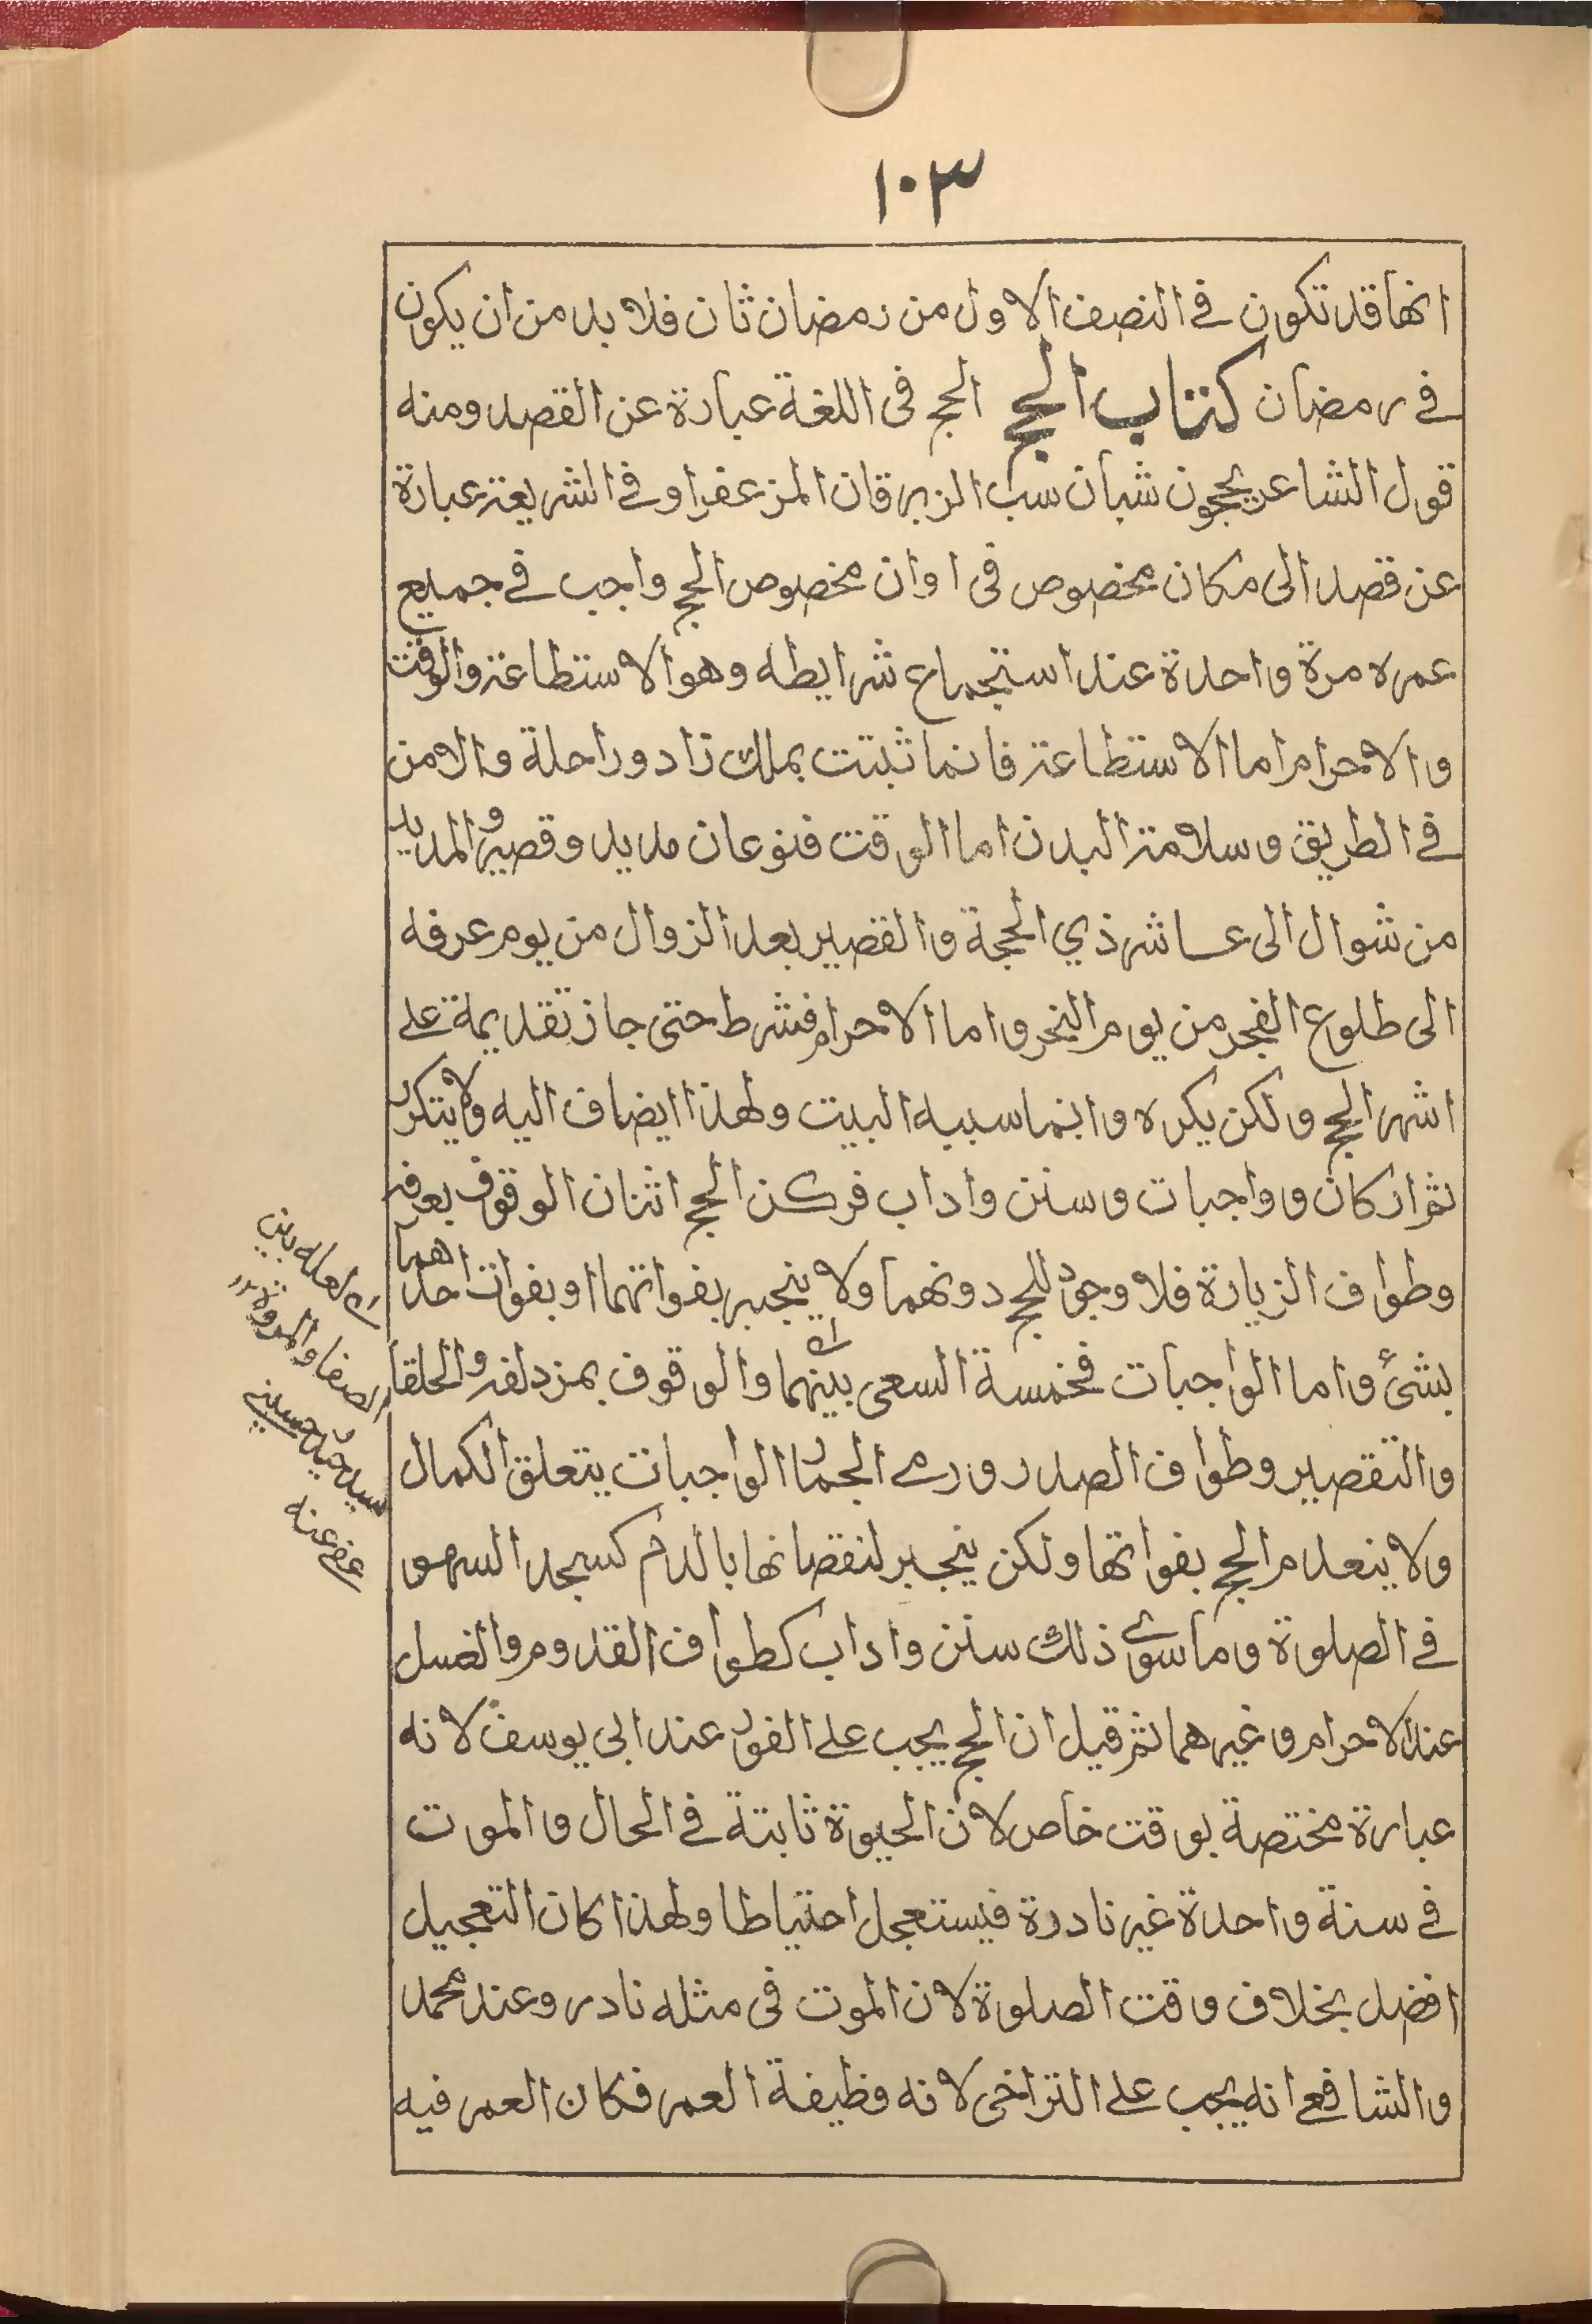 ١٠٣
انها قد تكون في النصف الاول من رمضان ثان فلا بد من ان يكون
في رمضان كتاب الحج الحج في اللغة عبارة عن القصد ومنه
قول الشاعر يحجون شبان سب الزبرقان المزعفرا وفي الشريعة عبارة
عن قصد الى مكان مخصوص في اوان مخصوص الحج واجب في جميع
عمره مرة واحدة عند استجماع شرايطه وهو الاستطاعة والوقت
والاحرام اما الاستطاعة فانما ثبتت بملك زاد وراحلة والامن
في الطريق وسلامة البدن اما الوقت فنوعان مديد وقصير والمديد
من شوال الى عاشر ذي الحجة والقصير بعد الزوال من يوم عرفه
الى طلوع الفجر من يوم النحر واما الاحرام فشرط حتى جاز تقديمة على
اشهر الحج ولكن يكره وانما سببه البيت ولهذا ايضاف اليه ولا يتكرر
ثم اركان وواجبات وسنن واداب فركن الحج اثنان الوقوف بعرفة
وطواف الزيارة فلا وجود للحج دونهما ولا ينجبر بفواتهما او بفوات احدهما
بشئ واما الواجبات فخمسة السعى بينهما والوقوف بمزدلفة والحلقا
والتقصير وطواف الصدر ورمي الجمار الواجبات يتعلق الكمال
ولا ينعدم الحج بفواتها ولكن ينجبر لنقصانها بالدم كسجد السهو
في الصلوة وما سوى ذلك سنن واداب كطواف القدوم والغسل
عند الاحرام وغيرهما ثم قيل ان الحج يجب على الفور عند ابي يوسف لانه
عبارة مختصة بوقت خاص لان الحيوة ثابتة في الحال والموت
في سنة واحدة غير نادرة فيستعجل احتياطا ولهذا كان التعجيل
افضل بخلاف وقت الصلوة لان الموت في مثله نادر وعند محمد
والشافعي انه يجب على التراخى لانه وظيفة العمر فكان العمر فيه
لعله بين
الصفا والمروة
سيد حسيني
عفي عنه